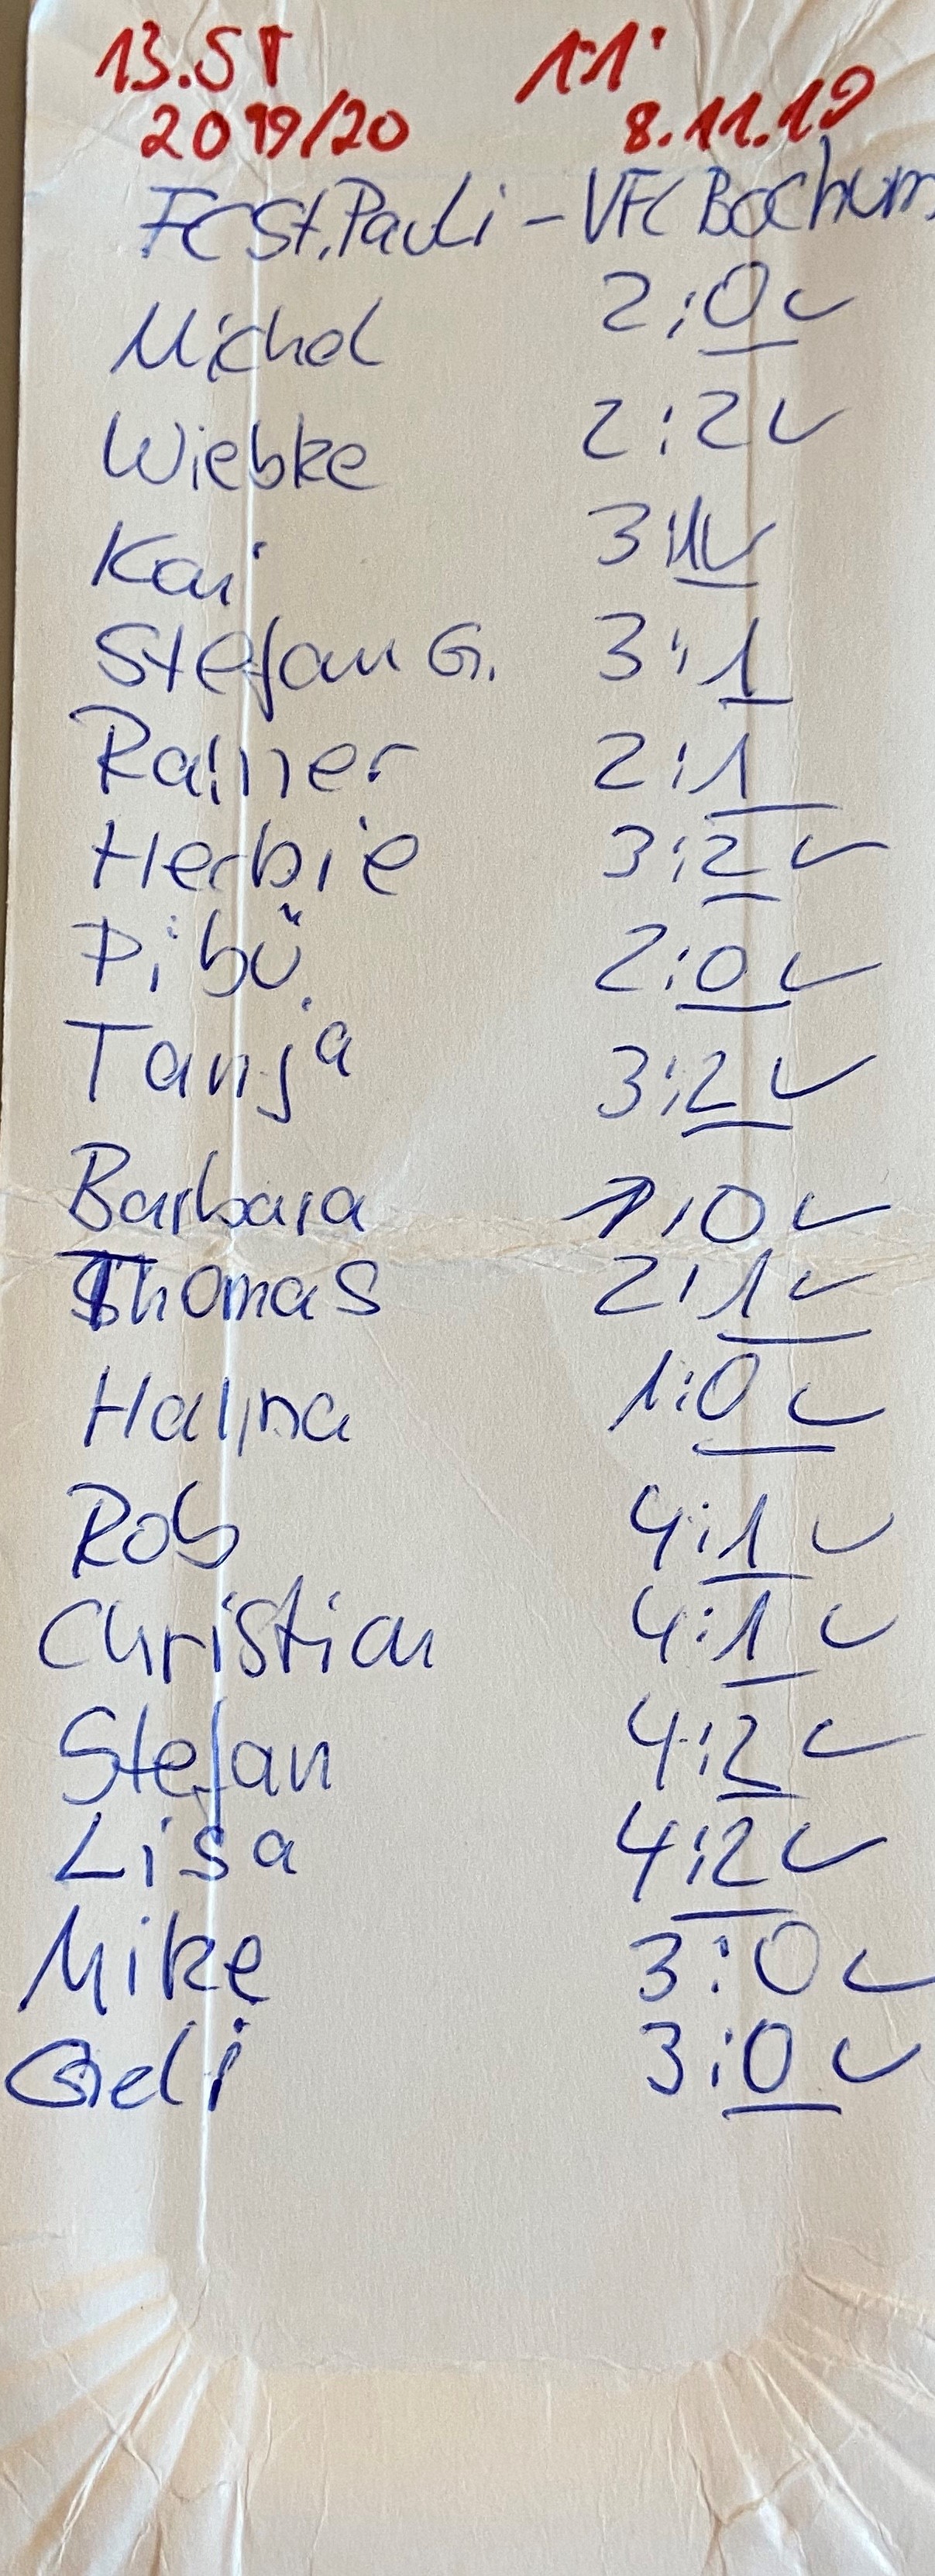 13.ST 1:1
2019/20 8.11.19
FC St. Pauli - VFL Bochum
Michel 2:0 ✓
Wiebke 2:2 ✓
Kai 3:1 ✓
Stefan G. 3:1
Rainer 2:1
Herbie 3:2 ✓
Pibü 2:0 ✓
Tanja 3:2 ✓
Barbara 1:0 ✓
Thomas 2:1 ✓
Halina 1:0 ✓
Rob 4:1 ✓
Christian 4:1 ✓
Stefan 4:2 ✓
Lisa 4:2 ✓
Mike 3:0 ✓
Geli 3:0 ✓